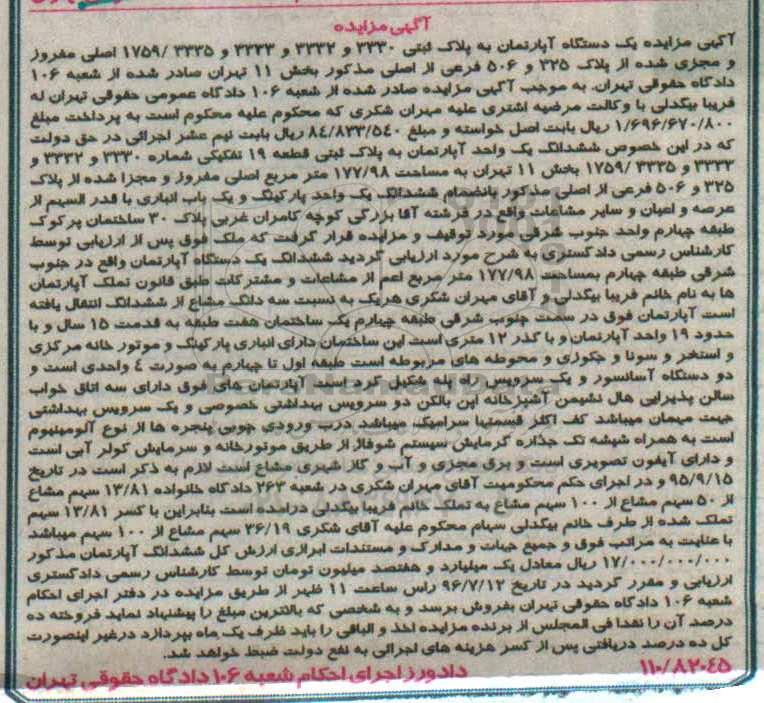 آگهی مزایده
آگهی مزایده یک دستگاه آپارتمان به پلاک ثبتی ۳۳۳۰ و ۳۳۳۲ و ۳۳۳۳ و ۳۳۳۵ /۱۷۵۹ اصلی مفروز
و مجزی شده از پلاک ۳۲۵ و ۵۰۶ فرعی از اصلی مذکور بخش ۱۱ تهران صادر شده از شعبه ۱۰۶
دادگاه حقوقی تهران. به موجب آگهی مزایده صادر شده از شعبه ۱۰۶ دادگاه عمومی حقوقی تهران له
فریبا بیگدلی با وکالت مرضیه اشتری علیه مهران شکری که محکوم علیه محکوم است به پرداخت مبلغ
۱/۶۹۶/۶۷۰/۸۰۰ ریال بابت اصل خواسته و مبلغ ۸٤/۸۳۳/۵٤۰ ریال بابت نیم عشر اجرائی در حق دولت
که در این خصوص ششدانگ یک واحد آپارتمان به پلاک ثبتی قطعه ۱۹ تفکیکی شماره ۳۳۳۰ و ۳۳۳۲ و
۳۳۳۳ و ۳۳۳۵ /۱۷۵۹ بخش ۱۱ تهران به مساحت ۱۷۷/۹۸ متر مربع اصلی مفروز و مجزا شده از پلاک
۳۲۵ و ۵۰۶ فرعی از اصلی مذکور بانضمام ششدانگ یک واحد پارکینگ و یک باب انباری با قدر السهم از
عرصه و اعیان و سایر مشاعات واقع در فرشته آقا بزرگی کوچه کامران غربی پلاک ۳۰ ساختمان پرکوک
طبقه چهارم واحد جنوب شرقی مورد توقیف و مزایده قرار گرفت که ملک فوق پس از ارزیابی توسط
کارشناس رسمی دادگستری به شرح مورد ارزیابی گردید ششدانگ یک دستگاه آپارتمان واقع در جنوب
شرقی طبقه چهارم بمساحت ۱۷۷/۹۸ متر مربع اعم از مشاعات و مشترکات طبق قانون تملک آپارتمان
ها به نام خانم فریبا بیگدلی و آقای مهران شکری هریک به نسبت سه دانگ مشاع از ششدانگ انتقال یافته
است آپارتمان فوق در سمت جنوب شرقی طبقه چهارم یک ساختمان هفت طبقه به قدمت ۱۵ سال و با
حدود ۱۹ واحد آپارتمان و با گذر ۱۲ متری است این ساختمان دارای انباری پارکینگ و موتور خانه مرکزی
و استخر و سونا و جکوزی و محوطه های مربوطه است طبقه اول تا چهارم به صورت ٤ واحدی است و
دو دستگاه آسانسور و یک سرویس راه پله شکیل کرد است آپارتمان های فوق دارای سه اتاق خواب
سالن پذیرایی هال نشیمن آشپزخانه اپن بالکن دو سرویس بهداشتی خصوصی و یک سرویس بهداشتی
جهت میهمان میباشد کف اکثر قسمتها سرامیک میباشد درب ورودی چوبی پنجره ها از نوع آلومینیوم
است به همراه شیشه تک جداره گرمایش سیستم شوفاژ از طریق موتورخانه و سرمایش کولر آبی است
و دارای آیفون تصویری است و برق مجزی و آب و گاز شهری مشاع است لازم به ذکر است در تاریخ
۹۵/۹/۱۵ و در اجرای حکم محکومیت آقای مهران شکری در شعبه ۲۶۳ دادگاه خانواده ۱۳/۸۱ سهم مشاع
از ۵۰ سهم مشاع از ۱۰۰ سهم مشاع به تملک خانم فریبا بیگدلی درامده است بنابراین با کسر ۱۳/۸۱ سهم
تملک شده از طرف خانم بیگدلی سهام محکوم علیه آقای شکری ۳۶/۱۹ سهم مشاع از ۱۰۰ سهم میباشد
با عنایت به مراتب فوق و جمیع جهات و مدارک و مستندات ابرازی ارزش کل ششدانگ آپارتمان مذکور
۱۷/۰۰۰/۰۰۰/۰۰۰ ریال معادل یک میلیارد و هفتصد میلیون تومان توسط کارشناس رسمی دادگستری
ارزیابی و مقرر گردید در تاریخ ۹۶/۷/۱۲ راس ساعت ۱۱ ظهر از طریق مزایده در دفتر اجرای احکام
شعبه ۱۰۶ دادگاه حقوقی تهران بفروش برسد و به شخصی که بالاترین مبلغ را پیشنهاد نماید فروخته ده
درصد آن را نقدا فی المجلس از برنده مزایده اخذ و الباقی را باید ظرف یک ماه بپردازد درغیر اینصورت
کل ده درصد دریافتی پس از کسر هزینه های اجرائی به نفع دولت ضبط خواهد شد.
۱۱۰/۸۲۰٤۵ دادورز اجرای احکام شعبه ۱۰۶ دادگاه حقوقی تهران